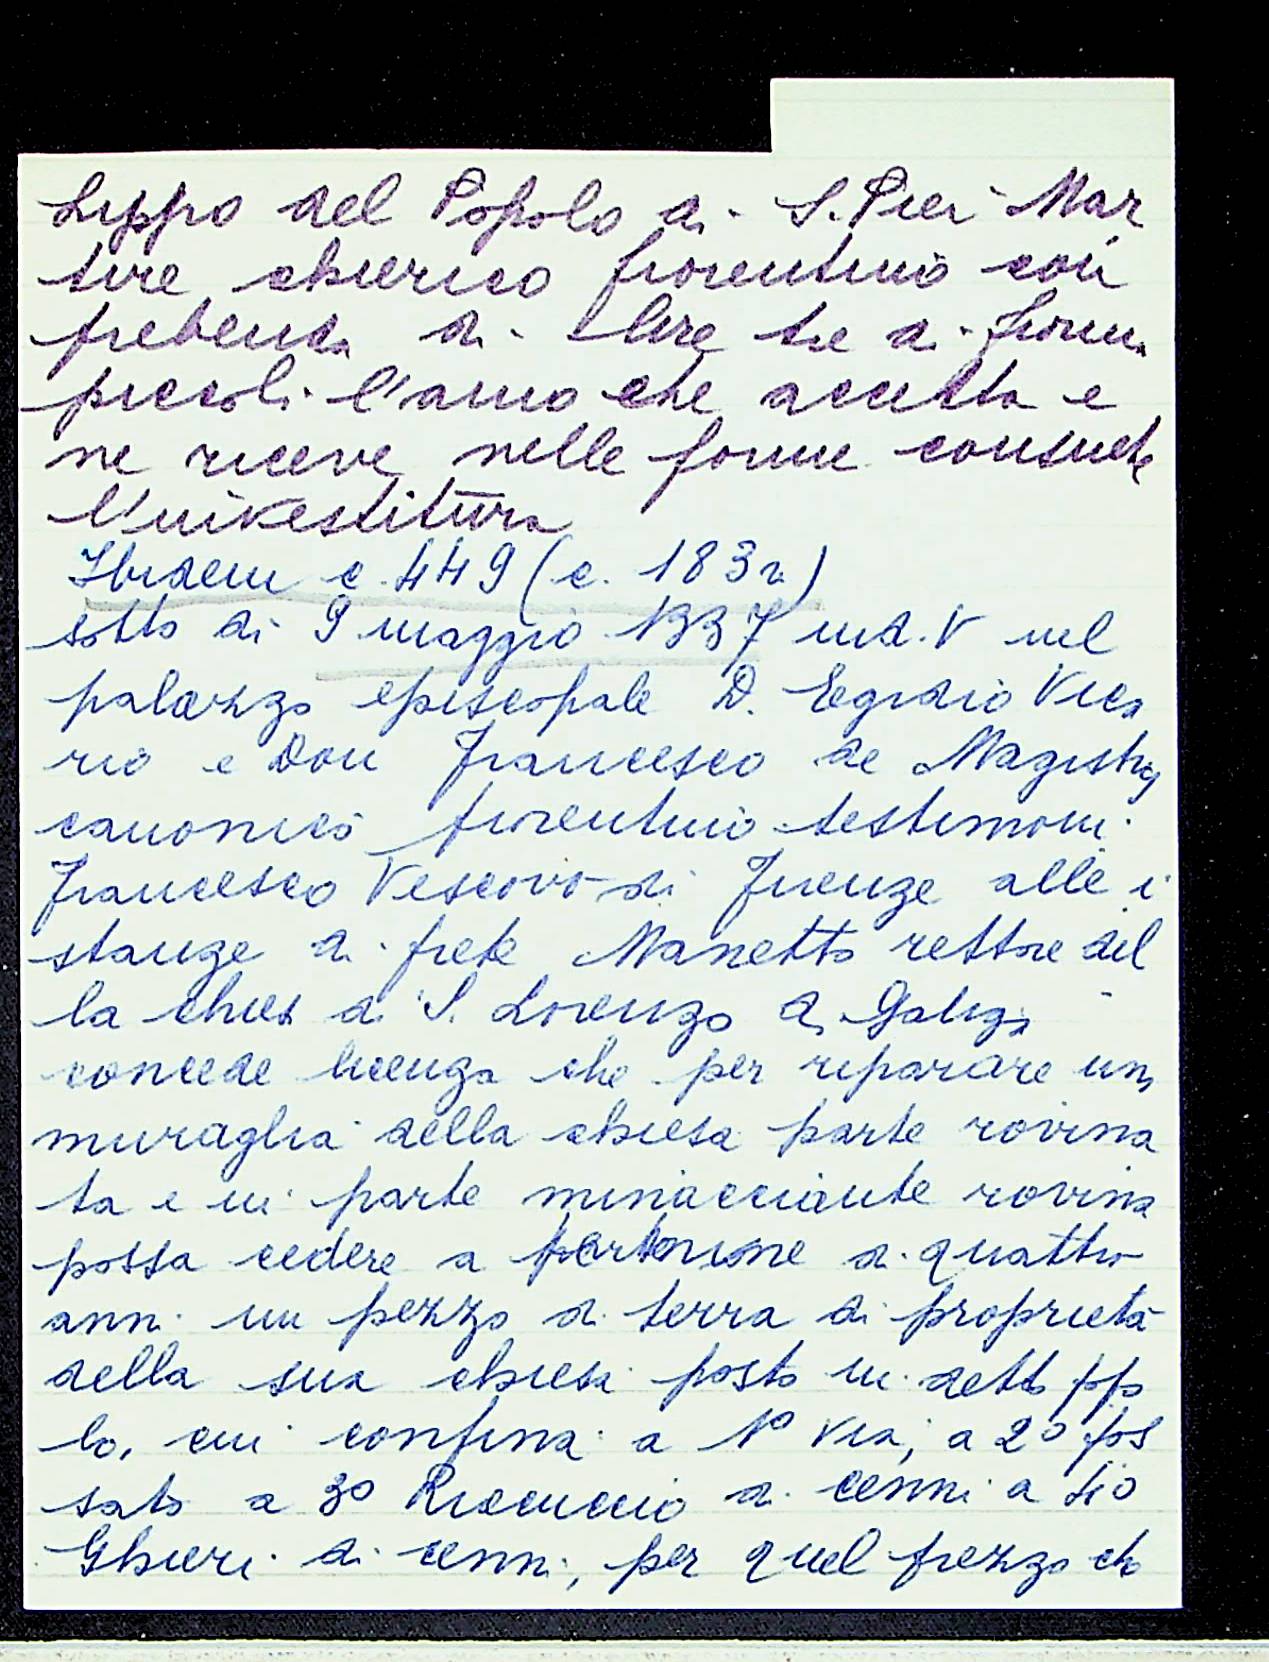 Lippo del Popolo di S. Pier Mar
tire chierico fiorentino con
prebenda di lire tre di fiorini
piccoli l'anno che accetta e
ne riceve nelle forme consuete
l'investitura
Ibidem c. 449 (c. 183 r)
sotto di 9 maggio 1337 ind. V nel
palazzo episcopale D. Egidio Vica
rio e Don Francesco de Magistris
canonico fiorentino testimoni
Francesco Vescovo di Firenze alle i
stanze di prete Manetto rettore del
la chiesa di S. Lorenzo a
concede licenza che per riparare una
muraglia della chiesa parte rovina
ta e in parte minacciante rovina
possa cedere a di quattro
anni un pezzo di terra di proprietà
della sua chiesa posto in detto popo
lo, cui confina a 1º via, a 2º fos
sato a 3º di Cenni a 4º
Ghieri di Cenni, per quel prezzo che